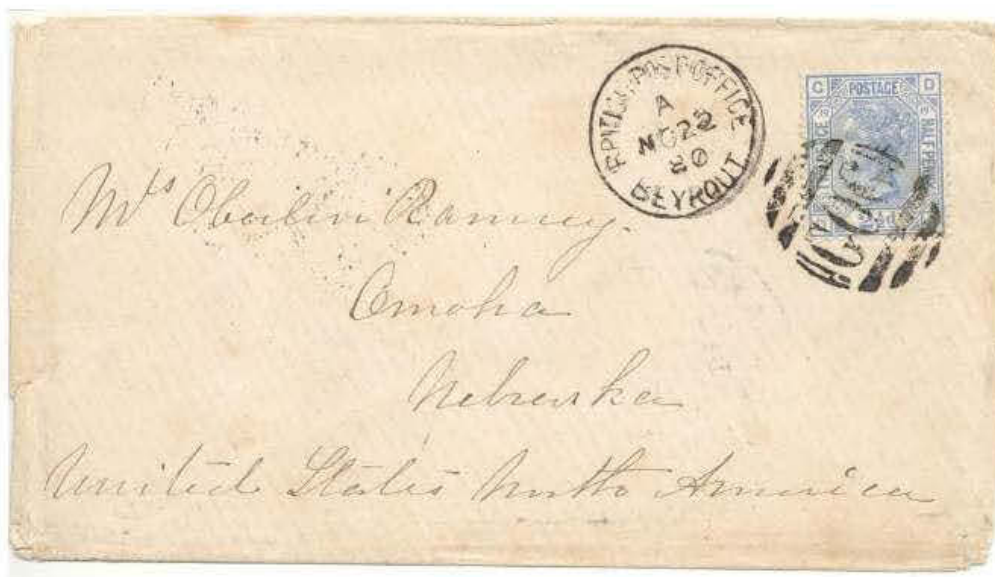 BRITISH POST OFFICE
A
NO 22
80
BEYROUT
C POSTAGE D
HALF PENNY
Mrs Oberlin Ramsey.
Omaha
Nebraska
United States North America